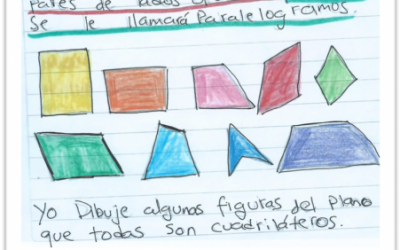 Pares de lados
Se le llamará Paralelogramos.
Yo Dibuje algunas figuras del plano
que todas son cuadriláteros.